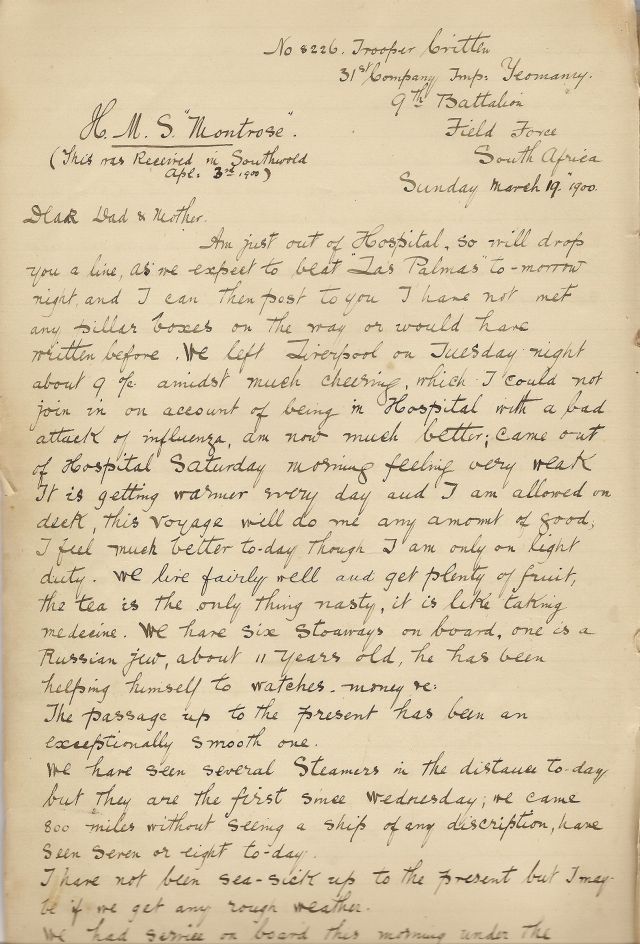 No 8226. Trooper Critten
31st Company Imp: Yeomanry.
9th Battalion
Field Force
South Africa
H.M.S "Montrose".
(This was Received in Southwold
Apl: 3rd 1900)
Sunday March 19th 1900.
Dear Dad & Mother.
Am just out of Hospital, so will drop
you a line, as we expect to beat "Las Palmas" to-morrow
night, and I can then post to you I have not met
any pillar boxes on the way or would have
written before. We left Liverpool on Tuesday night
about 9 o/c amidst much cheering, which I could not
join in on account of being in Hospital with a bad
attack of influenza, am now much better; came out
of Hospital Saturday morning feeling very weak
It is getting warmer every day and I am allowed on
deck, this voyage will do me any amomt of good,
I feel much better to-day though I am only on light
duty. We live fairly well and get plenty of fruit,
the tea is the only thing nasty, it is like taking
medecine. We have six stoaways on board, one is a
Russian jew, about 11 years old, he has been
helping himself to watches. money &c:
The passage up to the present has been an
exceptionally smooth one.
We have seen several Steamers in the distance to-day
but they are the first since Wednesday; we came
800 miles without seeing a ship of any discription, have
seen seven or eight to-day.
I have not been sea-sick up to the present but I may
be if we get any rough weather.
We had service on board this morning under the